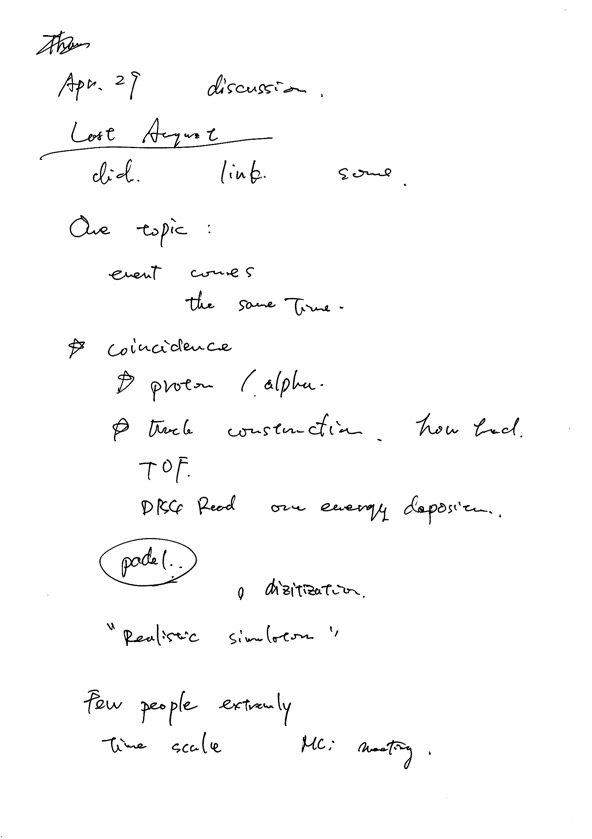 Apr. 29 discussion.
Last August
did. link. some.
One topic :
event comes
the same Time.
coincidence
proton / alpha.
track construction. how bad.
TOF.
Read out energy deposition..
padel..
dizitization.
"Realistic simulation"
Few people extremly
time scale MC: meeting.